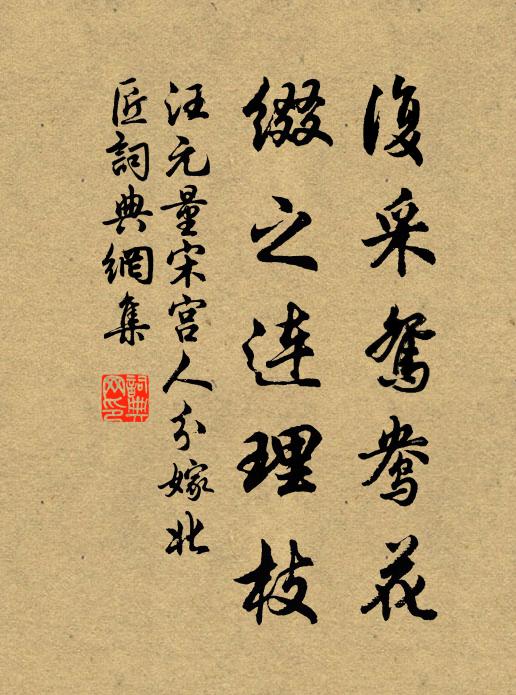 復采鴛鴦花
綴之连理枝
汪元量宋宫人分嫁北
匠詞典網集
詞典網印